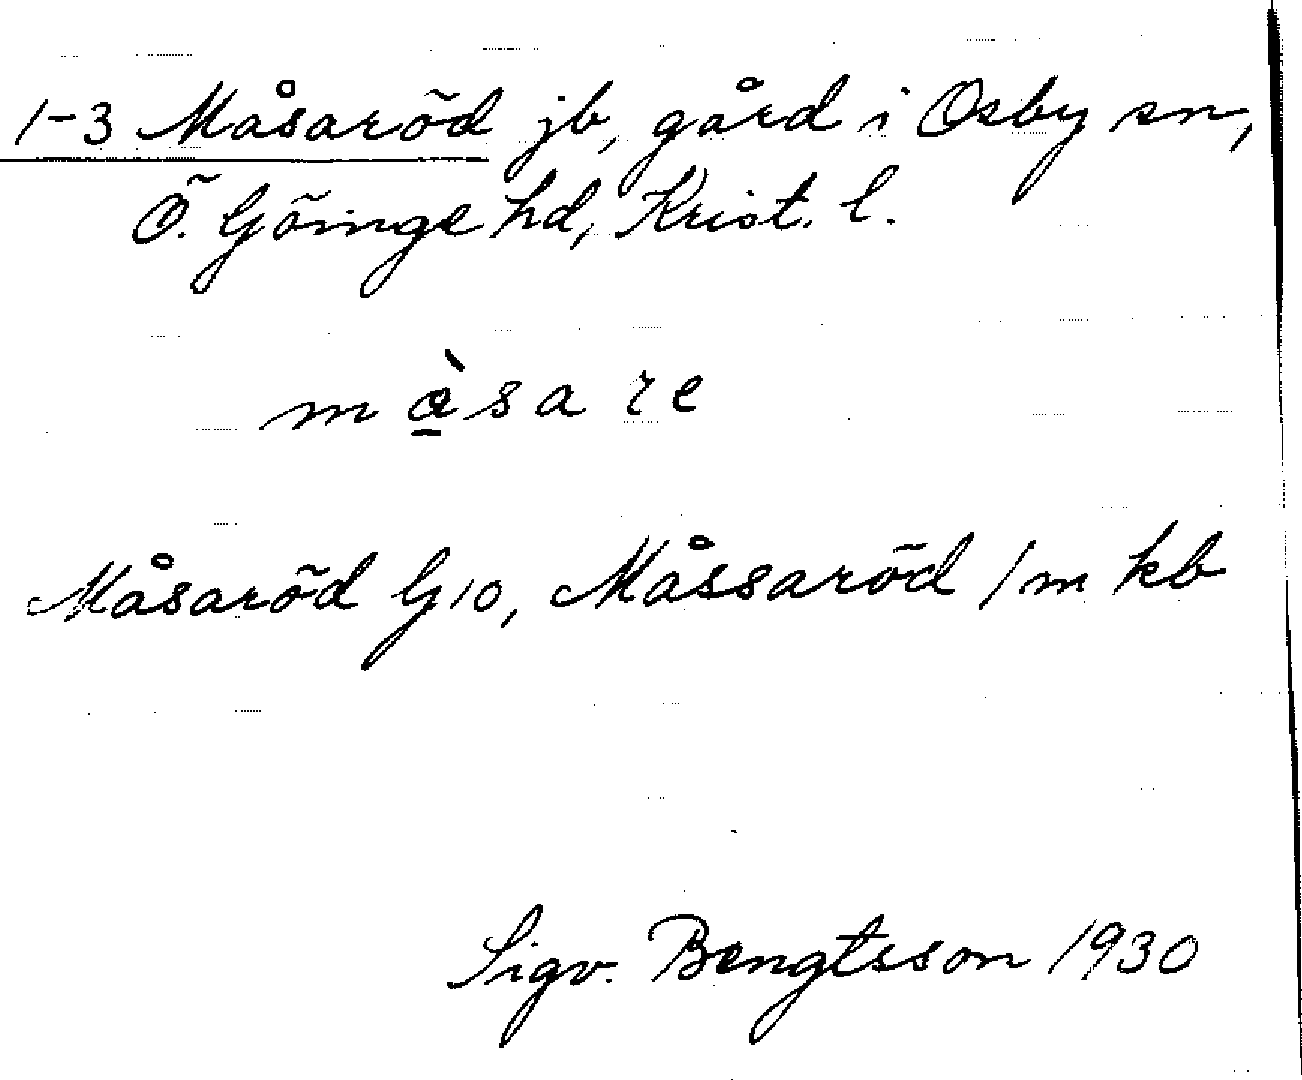 1-3 Måsaröd jb, gård i Osby sn,
Ö. Göinge hd, Krist. l.
Måsaröd G10, Måssaröd 1 m kb
Sigv. Bengtsson 1930